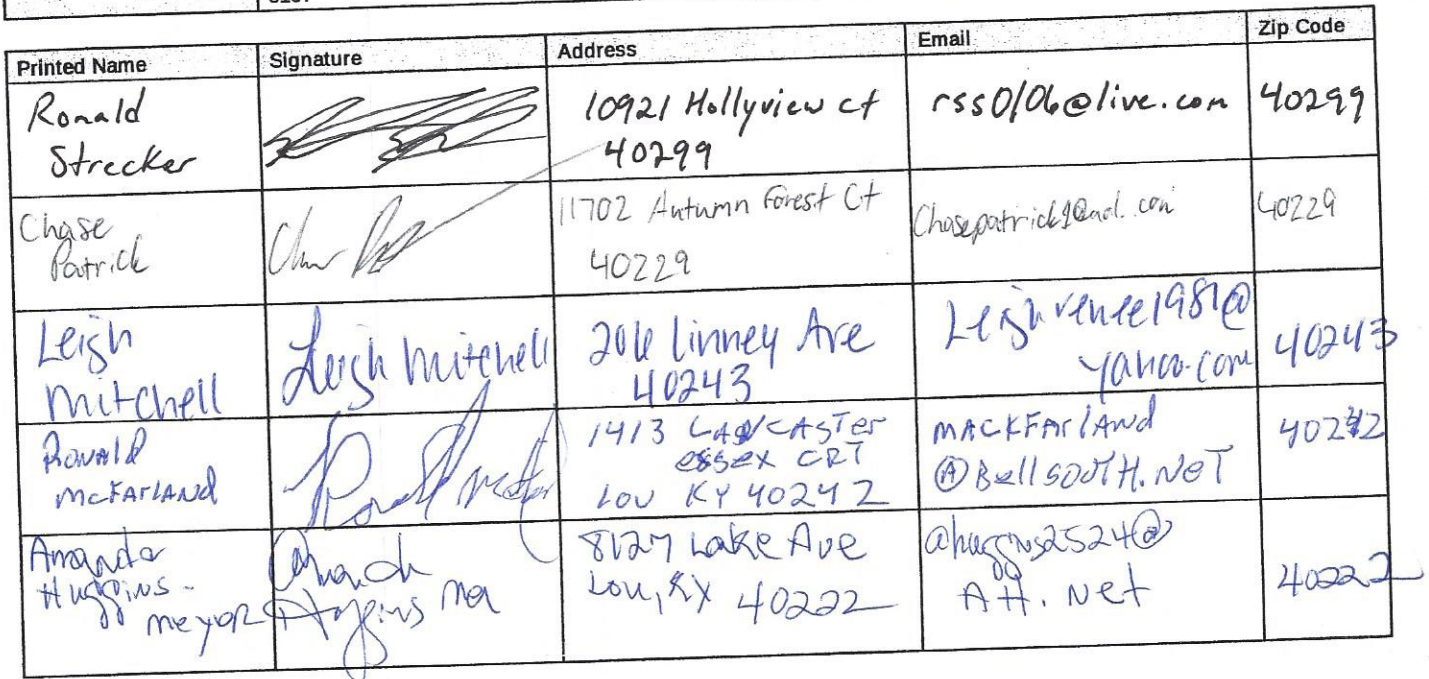 Printed Name Signature Address Email Zip Code
Ronald
Strecker
10921 Hollyview ct
40299
rss0106@live.com
40299
Chase
Patrick
11702 Autumn Forest Ct
40229
Chasepatrick1@aol.com
40229
Leigh
Mitchell
Leigh Mitchell
206 Linney Ave
40243
Leighrenee1981@
yahoo.com
40243
Ronald
McFarland
1413 LANCASTER
essex CRT
Lou KY 40242
MACKFArlANd
@BellSOUTH.NeT
40242
Amanda
Huggins-
meyor
8127 Lake Ave
Lou, KY 40222
ahuggins2524@
AH. Net
40222